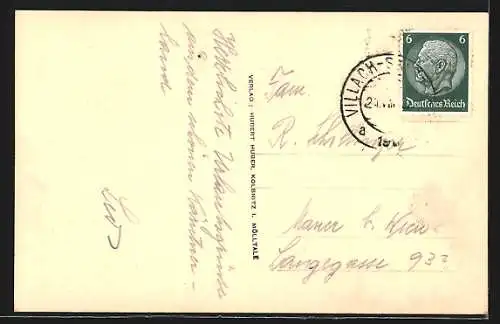 Herzlichste Urlaubsgrüße
aus dem schönen Kärntner-
land
VERLAG: HUBERT HUBER, KOLBNITZ I. MÖLLTALE
VILLACH-S
a
6 6
Deutsches Reich
Fam.
R.
Mauer b. Wien
Langegasse 93